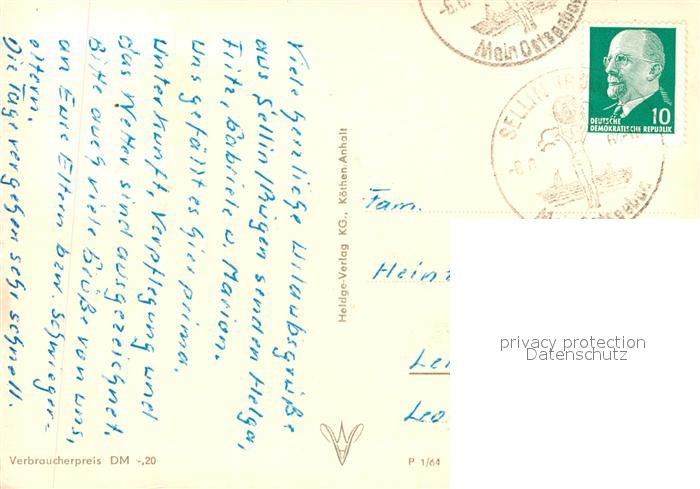 Viele herzliche Urlaubsgrüße
aus Sellin/Rügen senden Helga,
Fritz, Gabriele u. Marion.
Uns gefällt es hier prima.
Unterkunft, Verpflegung und
das Wetter sind ausgezeichnet.
Bitte auch viele Grüße von uns,
an Eure Eltern bzw. Schwieger-
eltern.
Die Tage vergehen sehr schnell.
Verbraucherpreis DM -,20
Heldge-Verlag KG., Köthen-Anhalt
P 1/64
Mein Ostseebad
SELLIN
10
DEUTSCHE
DEMOKRATISCHE REPUBLIK
Fam.
Hein
Le
Leo
privacy protection
Datenschutz